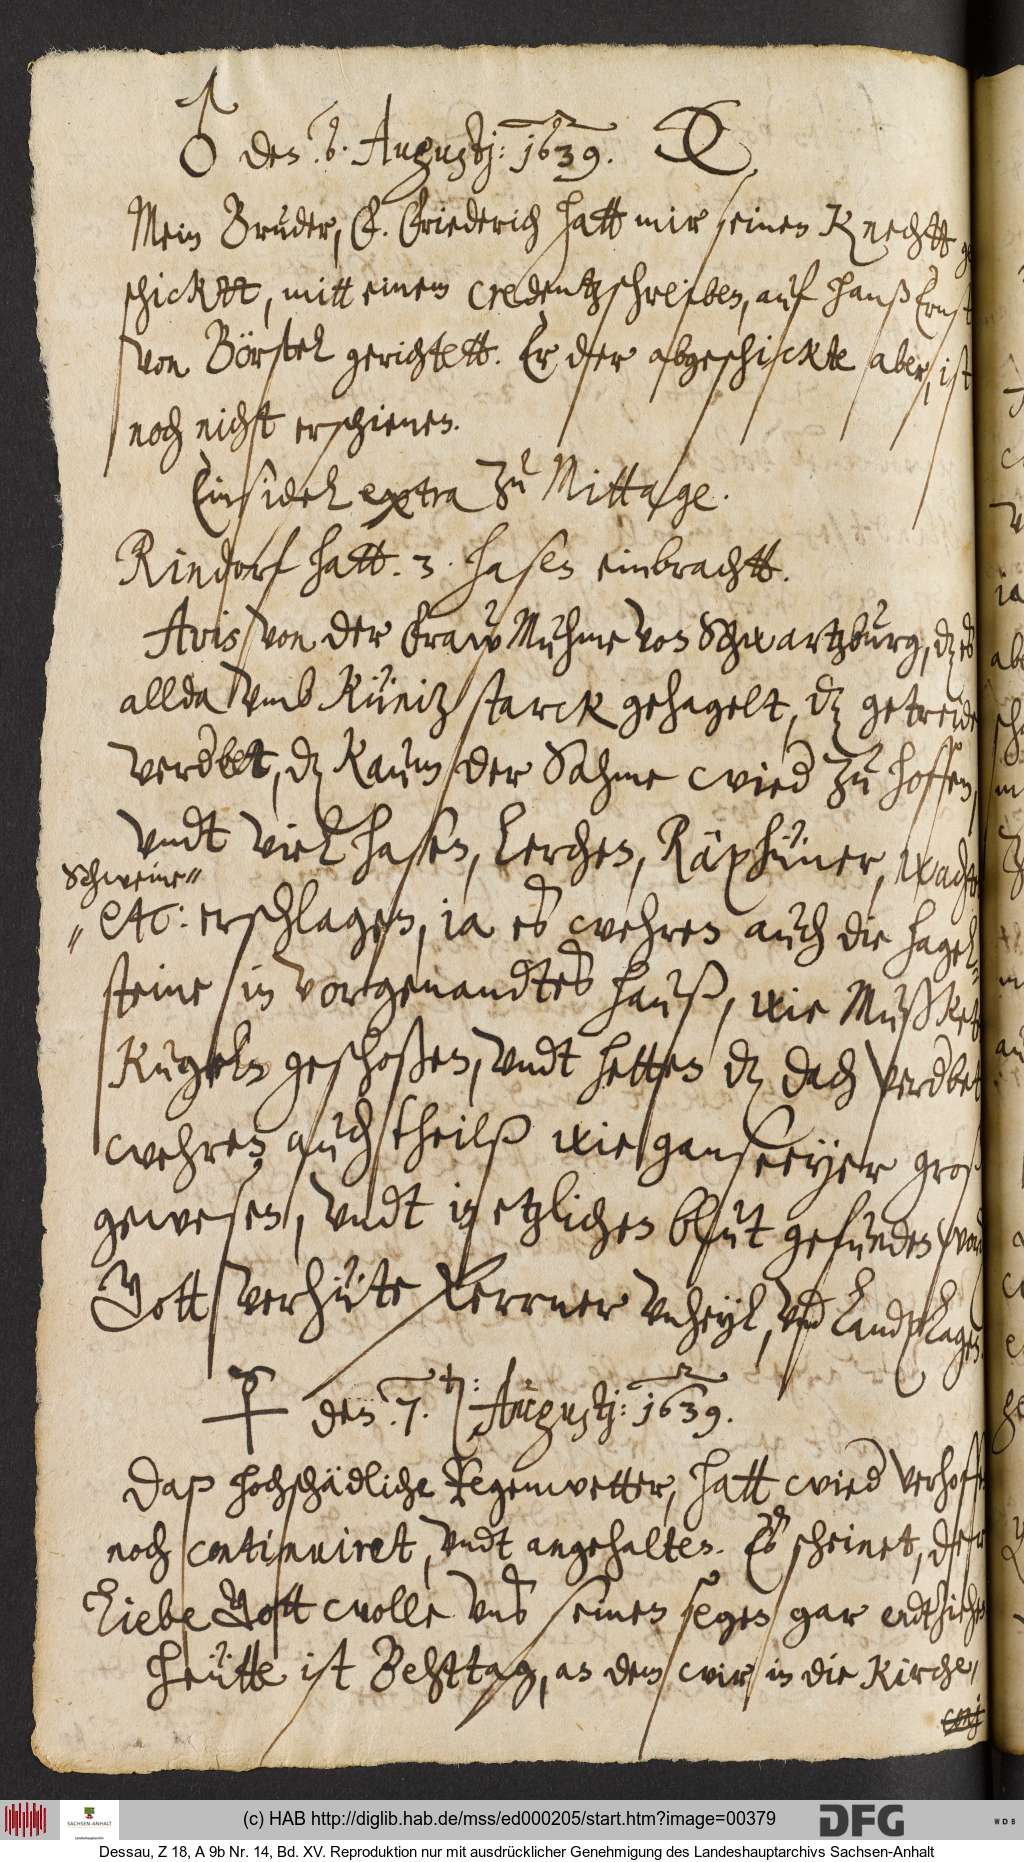 ♂ den .6. Augustj: 1639. ☾
Mein Bruder, F. Friederich hatt mir seinen Knechtt ge
schicktt, mitt einem credentzschreiben, auf Hanß Ernst
von Börstel gerichtett. Er der abgeschickte aber, ist
noch nicht erschienen.
Einsidel extra zu Mittage.
Rindorf hatt .3. hasen einbrachtt.
Avis von der Fraw Muhme von Schwartzburg, dz es
allda vmb Küniz starck gehagelt, dz getreide
verderbet, dz kaum der Sahme wird zu hoffen,
vndt viel hasen, Lerchen, Räphüner,
Schweine
etc: erschlagen, ia es wehren auch die hagel-
steine in vorgenandtes hauß, wie Mußket
Kugeln geschoßen, vndt hetten dz dach verderbet
wehren auch theilß wie ganseeyer groß
gewesen, vndt in etzlichen blut gefunden word
Gott verhüte ferrner vnheyl, vnd Landplagen.
♀ den .7. Augustj: 1639.
Daß hochschädliche Regenwetter, hatt wied verhoffen
noch continuiret, vndt angehalten. Es scheinet, der
Liebe Gott wolle vns seinen segen gar entziehen
Heütte ist Behttag, an dem wir in die Kirche,
(c) HAB http://diglib.hab.de/mss/ed000205/start.htm?image=00379
SACHSEN-ANHALT
DFG
WDB
Dessau, Z 18, A 9b Nr. 14, Bd. XV. Reproduktion nur mit ausdrücklicher Genehmigung des Landeshauptarchivs Sachsen-Anhalt